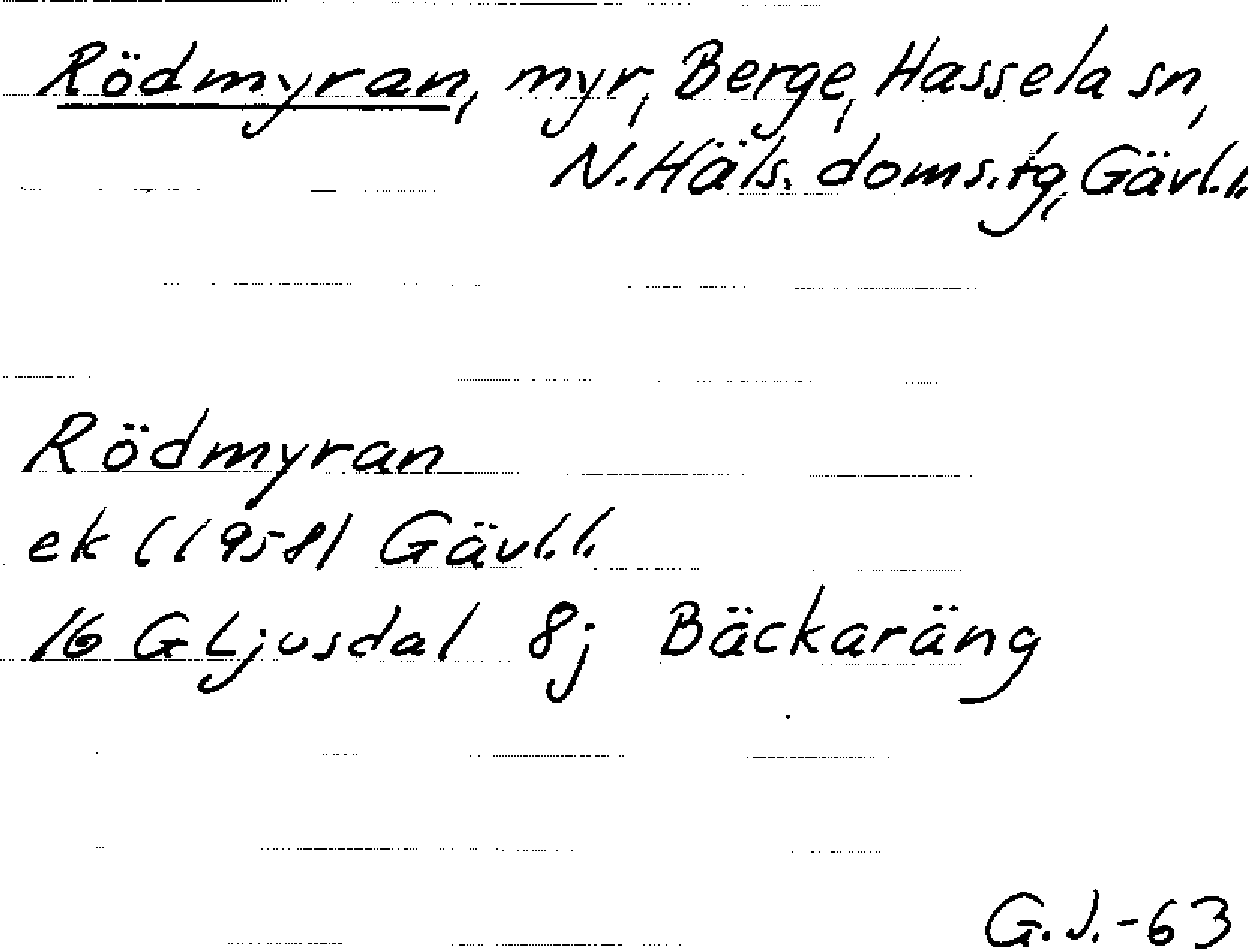 Rödmyran, myr, Berge, Hassela sn,
N. Häls. doms.tg, Gävl.l.
Rödmyran
ek (1958) Gävl.l.
16 G Ljusdal 8j Bäckaräng
G.J.-63